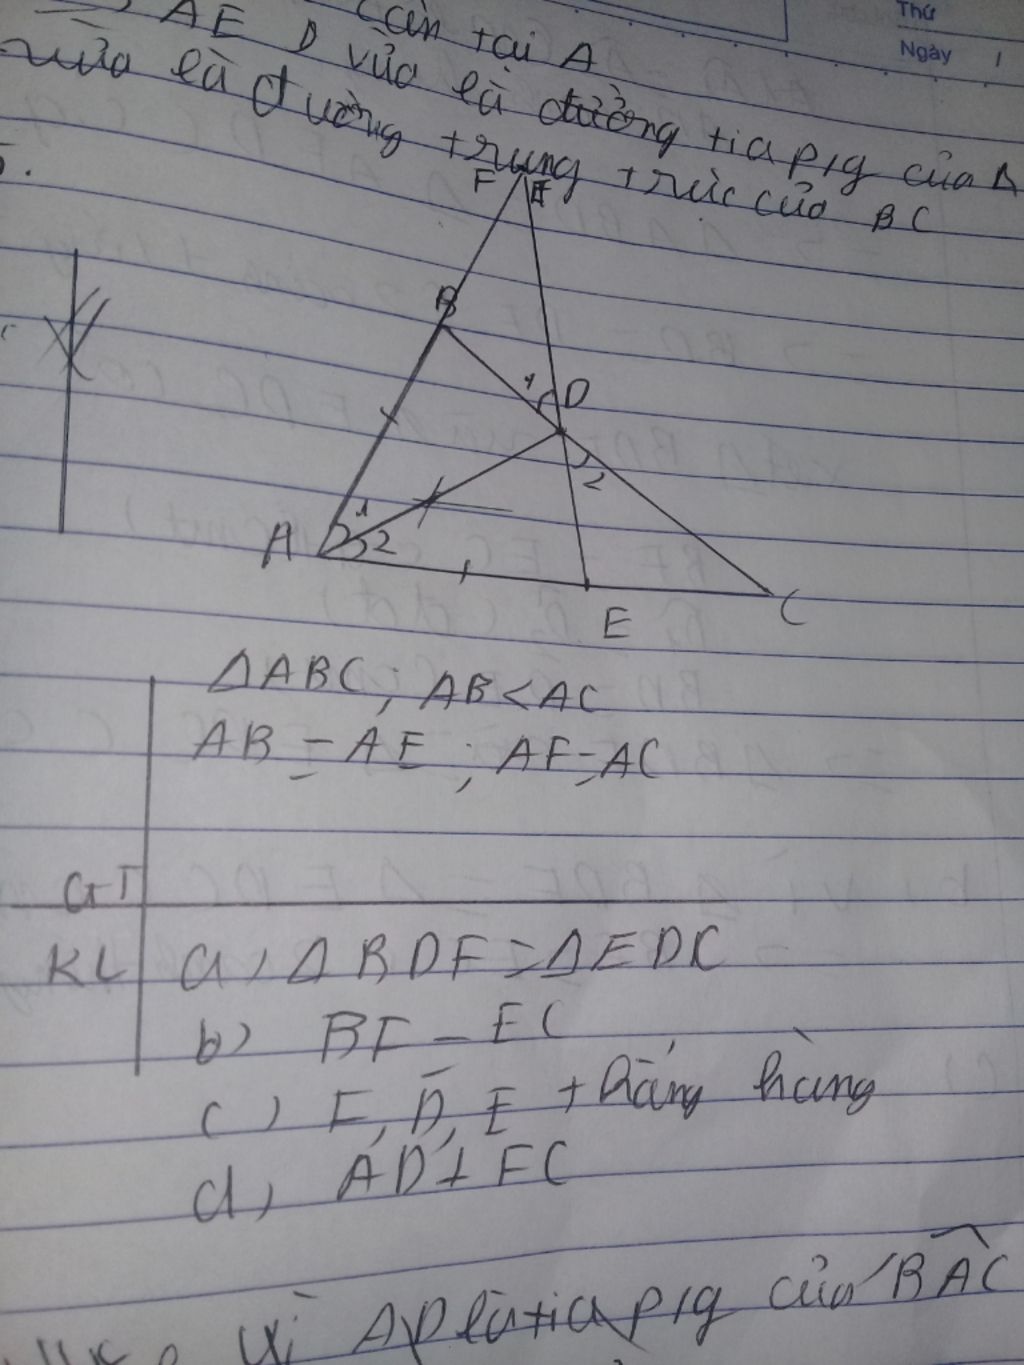 => AE D cân tại A
vừa là đường tia p/g của A
vừa là đường trung trực của BC
Thứ
Ngày
5.
F
B
1 D
2
A 1
2
E
C
ΔABC; AB < AC
AB = AE; AF = AC
GT
KL a, ΔBDF = ΔEDC
b) BF = EC
c) F, D, E thẳng hàng
d, AD ⊥ FC
Vì AD là tia p/g của BAC